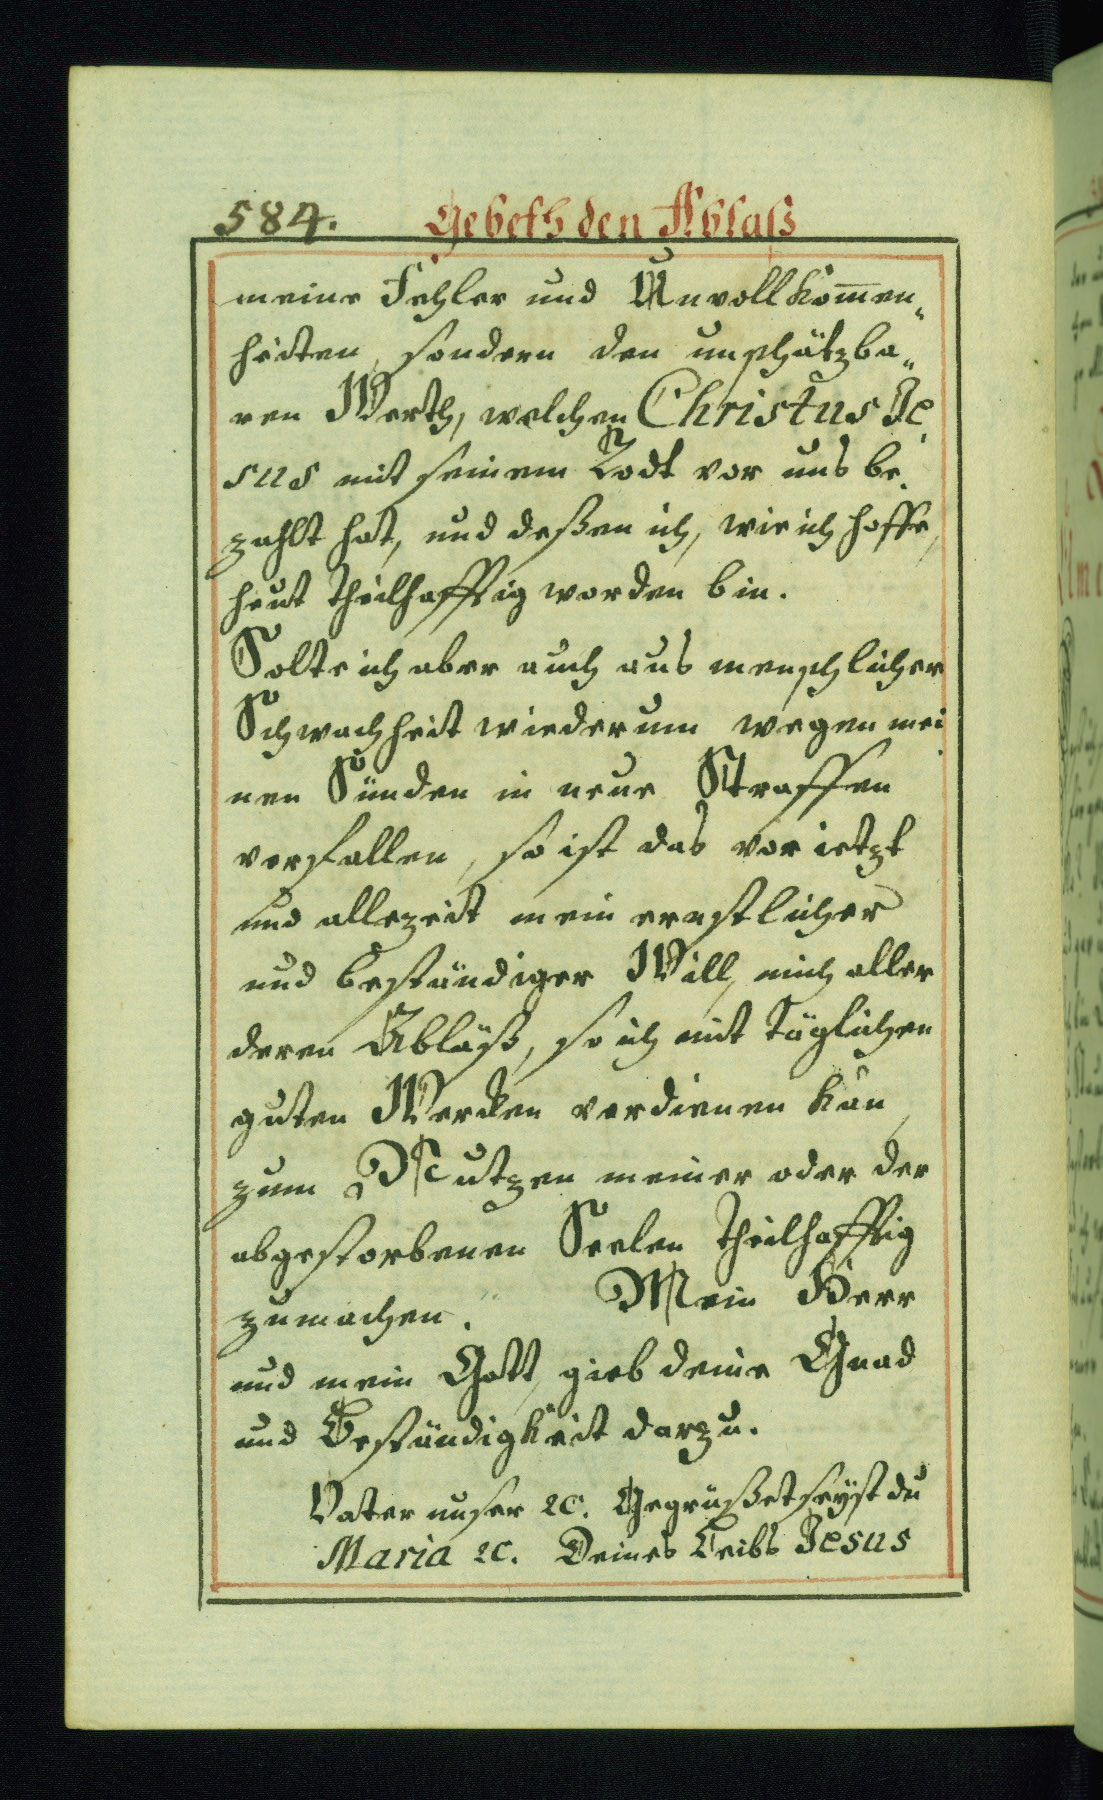 584. Gebeth den Ablaß
meine Fehler und Unvollkom̅en„
heiten, sondern den unschätzba„
ren Werth, welchen Christus Je
sus mit seinem Todt vor uns be„
zahlt hat, und deßen ich, wie ich hoffe,
heut theilhafftig worden bin.
Solte ich aber auch aus menschlicher
Schwachheit wiederum wegen mei
nen Sünden in neue Straffen
verfallen, so ist das vor ietzt
und allezeit mein ernstlicher
und beständiger Will, mich aller
deren Abläß, so ich mit täglichen
guten Wercken verdienen kan,
zum Nutzen meiner oder der
abgestorbenen Seelen theilhafftig
zumachen. Mein Herr
und mein Gott, gieb deine Gnad
und Beständigkeit darzu.
Vater unser ꝛc. Gegrüßet seyst du
Maria ꝛc. Deines Leibs Jesus